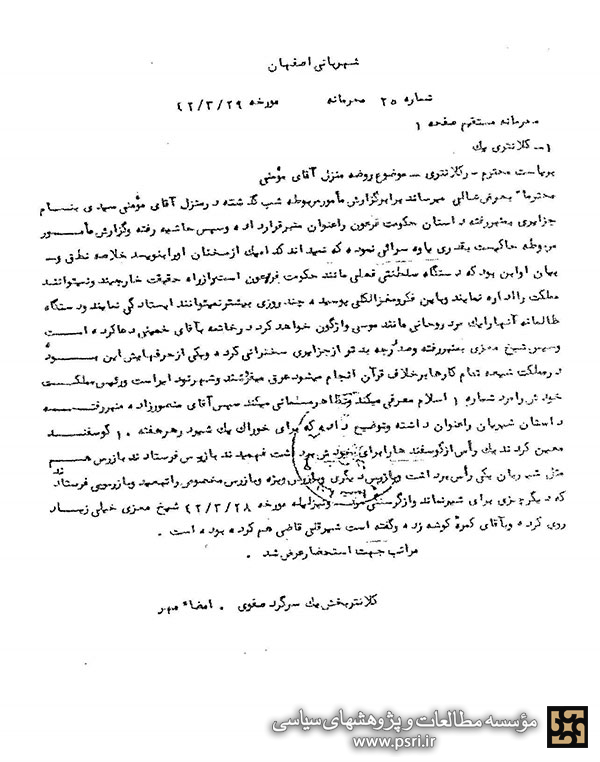 شهربانی اصفهان
شماره ۲۵ محرمانه مورخه ۴۲/۳/۲۹
محرمانه مستقیم صفحه ۱
۱- کلانتری یک
ریاست محترم - کلانتری - موضوع روضه منزل آقای مؤمنی
محترما" بعرض عالی میرساند برابر گزارش مأمور مربوطه شب گذشته در منزل آقای مؤمنی سیدی بنام
جزایری بمنبر رفته داستان حکومت فرعون را عنوان منبر قرار داده و سپس حاشیه رفته و گزارش مأمور
مربوطه حاکیست بقدری یاوه سرائی نموده که نمیداند کدامیک از سخنان او را بنویسد خلاصه نطق و -
بیان او این بود که دستگاه سلطنتی فعلی مانند حکومت فرعون است و از راه حقیقت خارجند و نمیتوانند
مملکت را اداره نمایند و باین فکر و مغز الکلی پوسیده چند روزی بیشتر نمیتوانند ایستادگی نمایند و دستگاه
ظالمانه آنها را یک مرد روحانی مانند موسی واژگون خواهد کرد در خاتمه بآقای خمینی دعا کرده است
و سپس شیخ معزی بمنبر رفته و صد درجه بدتر از جزایری سخنرانی کرده و یکی از حرفهایش این بوده
در مملکت شیعه تمام کارها برخلاف قرآن انجام میشود عرق میفروشند و شهر نو دایر است و رئیس مملکت
خودش را مرد شماره ۱ اسلام معرفی میکند و تظاهر مسلمانی میکند سپس آقای منصورزاده منبر رفته
داستان شیربان را عنوان داشته و توضیح داده که برای خوراک یک شیر در هر هفته ۱۰ گوسفند
معین کردند یک رأس از گوسفندها را برای خودش برداشت فهمیدند بازرس فرستادند بازرس هم
مثل شیربان یکی رأس برداشت و بازرس دیگری و بازرس ویژه و بازرس مخصوص را تبعید و بازرسویی فرستادند
که دیگر چیزی برای شیر نماند و از گرسنگی مرد و نیز لیله مورخه ۴۲/۳/۲۸ شیخ معزی خیلی زیاد
روی کرده و بآقای کمره گوشه زده و گفته است شیر قلی قاضی هم کرده بوده است .
مراتب جهت استحضار عرض شد .
کلانتر بخش یک سرگرد صفوی . امضاء مهر
مؤسسه مطالعات و پژوهشهای سیاسی
www.psri.ir